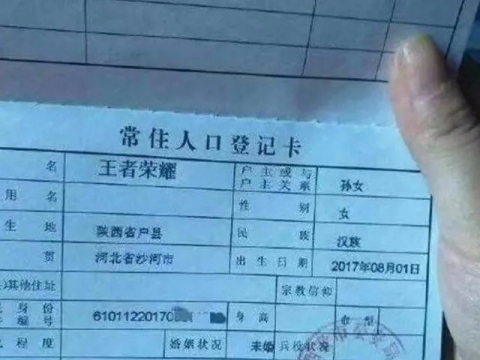 常住人口登记卡
名 王者荣耀 户主或与户主关系 孙女
用名 性别 女
生地 陕西省户县 民族 汉族
贯 河北省沙河市 出生日期 2017年08月01日
)其他住址 宗教信仰
身份编号 61011220170 身高
程度 婚姻状况 未婚 兵役状况